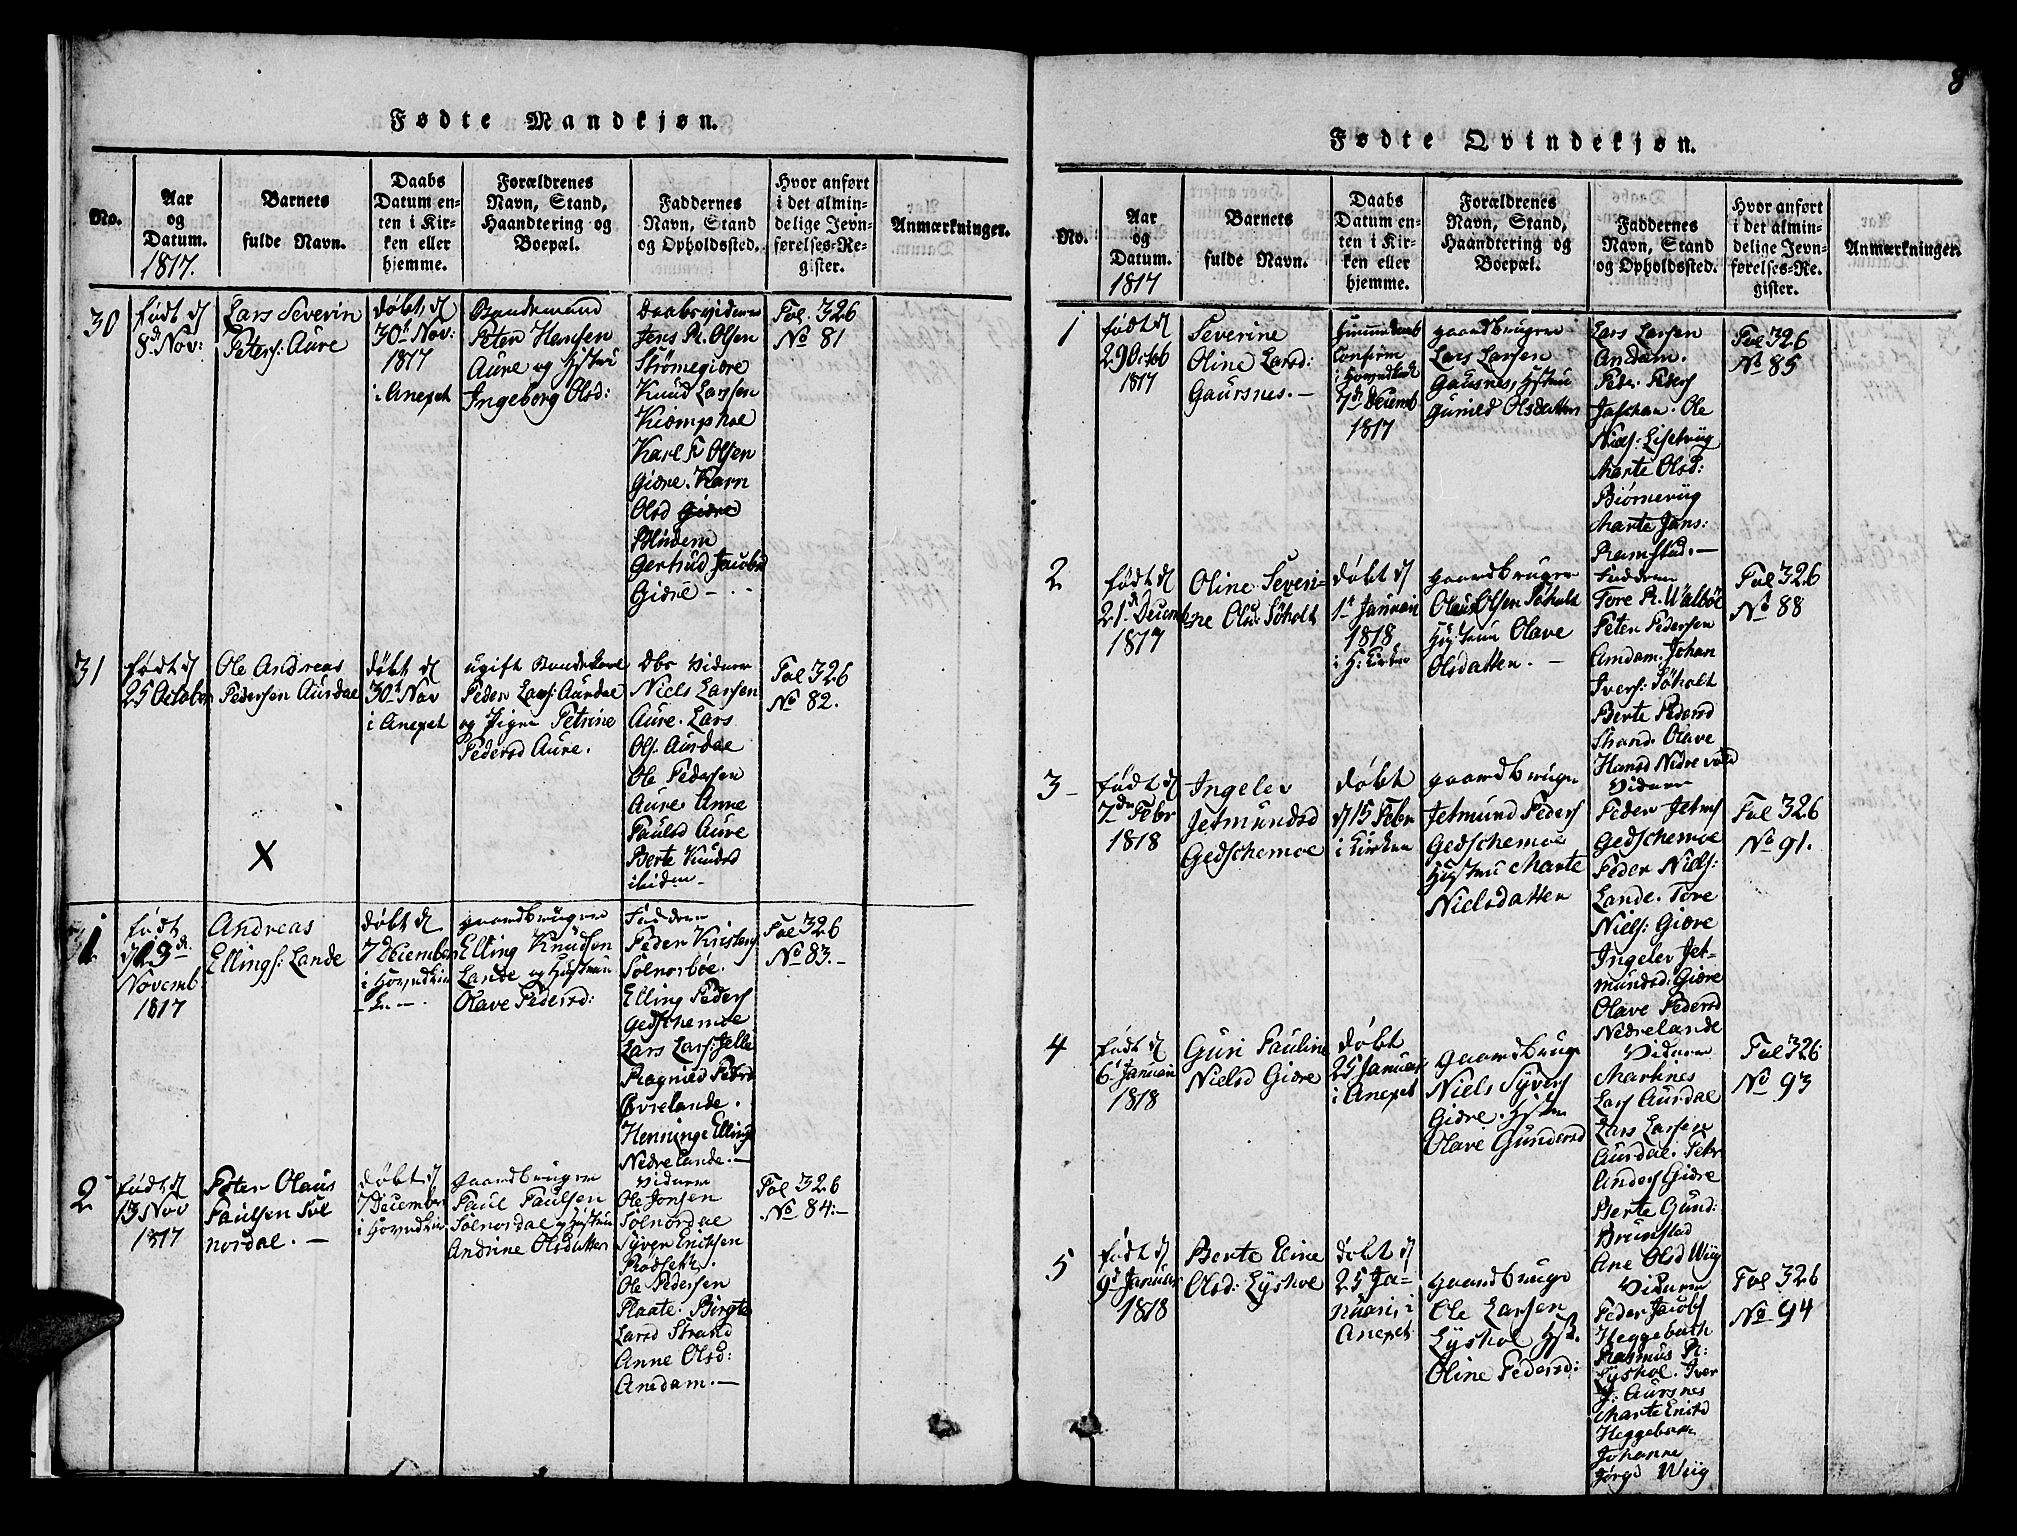 8
Fødte Mandkjøn.
No.
Aar
og
Datum.
1817.
Barnets
fulde Navn.
Daabs
Datum en-
ten i Kir-
ken eller
hjemme.
Forældrenes
Navn, Stand,
Haandtering og
Boepæl.
Faddernes
Navn, Stand
og Opholdssted.
Hvor anført
i det almin-
delige Jevn-
førelses-Re-
gister.
Anmærkninger.
30
født d
8d Nov:
Lars Severin
Peters: Aure
døbt d
30t Nov:
1817
i Anexet
Bondemand
Peter Hansen
Aure og Hustru
Ingeborg Olsd:
Daabsvidner
Jens R. Olsen
Strømegiøre
Knud Larsen
Kiømphoe
Karl K Olsen
Giøre. Karn
Olsd Giøre
Blindem
Gertrud Jacobsd
Giøre -
Fol. 326
No 81
31
født d
25 October
Ole Andreas
Pedersen Aurdae
døbt d
30t Nov
i Anexet
ugift Bondekarl
Peder Lars: Aurdae
og Pigen Petrine
Pedersd Aure.
Dbs Vidner
Niels Larsen
Aure. Lars
Ols. Aurdae
Ole Pedersen
Aure Anne
Paulsd Aure
Berte Knudsd
ibidem -
Fol 326
No 82.
X
1.
født
d 23d
Novemb
1817
Andreas
Ellings: Lande
døbt d
7 December
i Hovedkir
- ken -
gaardbruger
Elling Knudsen
Lande og Hustru
Olave Pedersd:
Faddere
Peder Kristens
Solnorbøe.
Elling Peders
Gedschemoe
Lars Lars: Jelle
Ragnild Pedrd
Øvrelande.
Henninge Ellings
Nedrelande. -
Fol 326
No 83. -
2
født d
13 Nov
1817
Peter Olaus
Paulsen Sol
nordal. -
døbt d
7 December
i Hovedkir
gaardbruger
Paul Paulsen
Solnordae og Hustru
Andrine Olsdatter
Vidner
Ole Jonsen
Solnordae
Syver Eriksen
Rødsekk.
Ole Pedersen
Flaate. Birgte
Larsd Strand
Anne Olsd:
Amdam. -
Fol 326
No 84. -
Fødte Qvindekjøn.
No.
Aar
og
Datum.
1817
Barnets
fulde Navn.
Daabs
Datum en-
ten i Kir-
ken eller
hjemme.
Forældrenes
Navn, Stand,
Haandtering og
Boepæl.
Faddernes
Navn, Stand
og Opholdssted.
Hvor anført
i det almin-
delige Jevn-
førelses-Re-
gister.
Anmærkninger.
1
født d
29 Octob
1817
Severine
Oline Larsd:
Gaursnes. -
Hiemmedøbt
Confirm
i Hovedkirk
7d Decemb
1817
gaardbruger
Lars Larsen
Gaursnes, Hustru
Gunild Olsdatter
Lars Larsen
Amdam.
Peder Peders
Ole
Niels:
Marte Olsd:
Biørnevüg
Marte Jans:
Ramstad. -
Fol 326
No 85
2
født d
21 d Decemb
1817
Oline Severi-
ne Olsd: Søholt
døbt d
1t Januari
1818
i H: Kirken
gaardbruger
Olaus Olsen Søholt
Hustru Olave
Olsdatter. -
Faddere
Tore R. Walbøe
Peter Pedersen
Amdam. Johan
Ivers: Søholt
Berte Pedersd
Strand. Olave
Hansd Nedre vold
Fol 326
No 88
3 -
født d
7de Febr
1818
Ingelev
Jetmundsd
Gedschemoe
døbt
d 15 Febr
i Kirken
gaardbruger
Jetmund Peders
Gedschemoe
Hustru Marte
Nielsdatter
Vidner
Peder Jetms
Gedschemoe
Peder Niels:
Lande. Tore
Niels: Giøre
Ingelev Jet-
mundsd: Giøre
Olave Pedersd
Nedrelande
Fol 326
No 91.
4
født d
6t Januari
1818
Guri Pauline
Nielsd Giøre
døbt
25 Januar
i Anexet
gaardbruger
Niels Syvers
Giøre. Hustru
Olave Gundersd
Vidner
Marknes
Lars Aurdae
Lars Larsen
Aurdae. Petr
Anders Giøre
Berte Gund:
Brunstad
Ane Olsd Wiig
Fol 326
No 93
5
født d
9d Januar
1818
Berte Eline
Olsd: Lyshoe
døbt d
25 Ja-
nuari, i
Anexet
gaardbruger
Ole Larsen
Lyshoe Hst.
Oline Pedersd:
Vidner
Peder Jacobs
Heggebakk
Rasmus R:
Lyshoe. Iver
J: Aursnes
Marte Ericsd
Heggebakk
Johanne
Jørgd Wiig
Fol 326
No 94